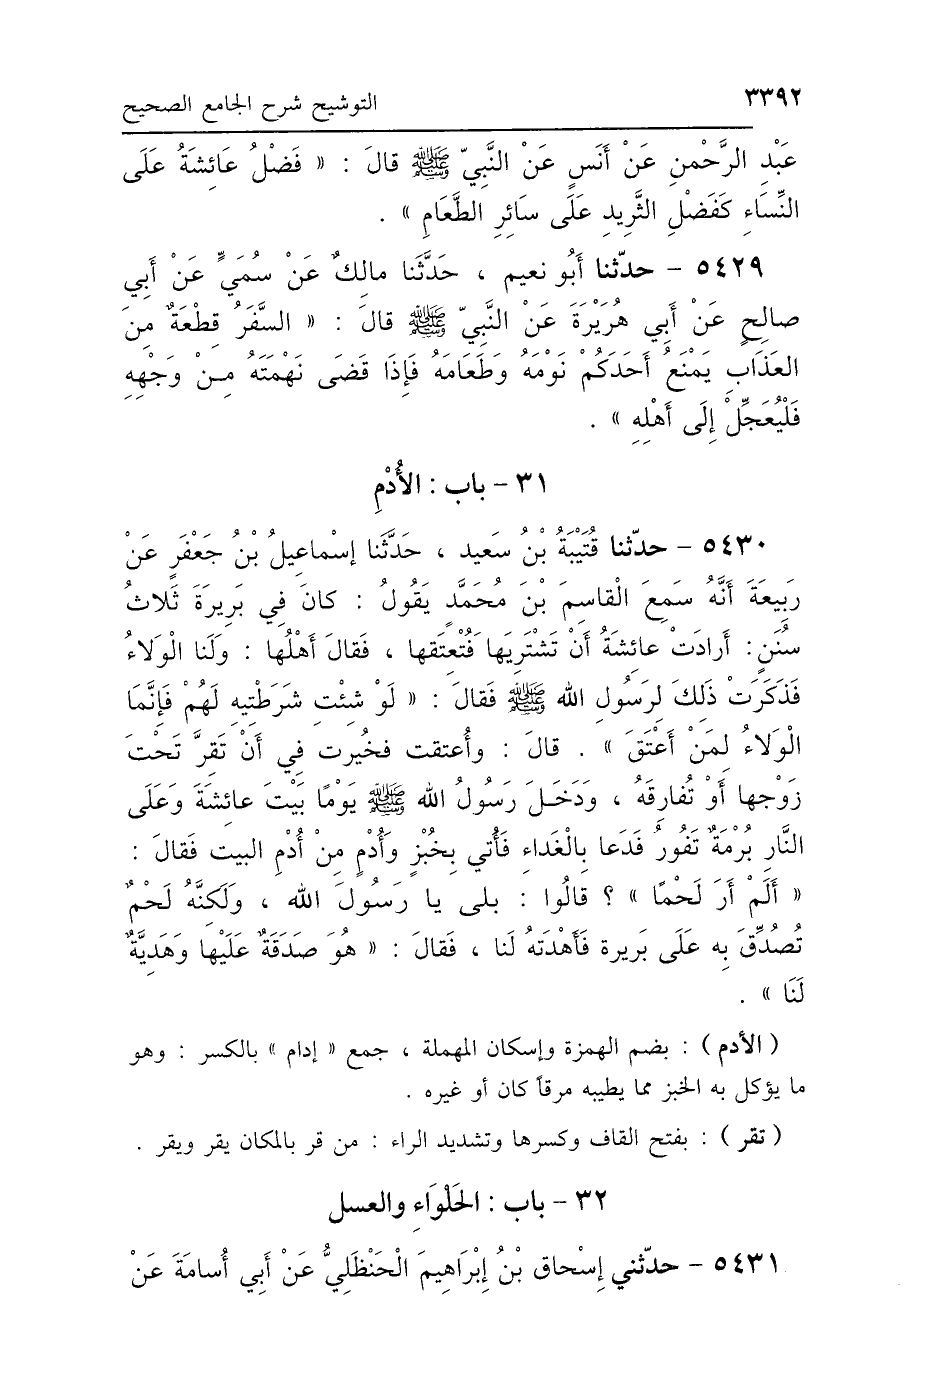 ٣٣٩٢
التوشيح شرح الجامع الصحيح
عَبْدِ الرَّحْمنِ عَنْ أَنَسٍ عَنْ النَّبِيّ ﷺ قالَ : « فَضْلُ عَائِشَةُ عَلَى
النِّسَاءِ كَفَضْلِ الثَّرِيدِ عَلَى سَائِرِ الطَّعَامِ » .
٥٤٢٩ - حدّثنا أَبُو نعيم ، حَدَّثَنا مالكٌ عَنْ سُمَيٍّ عَنْ أَبي
صالِحٍ عَنْ أَبِي هُرَيْرَةَ عَنْ النَّبِيّ ﷺ قالَ : « السَّفَرُ قِطْعَةٌ مِنَ
العَذَابِ يَمْنَعُ أَحَدَكُمْ نَوْمَهُ وَطَعَامَهُ فَإِذَا قَضَى نَهْمَتَهُ مِنْ وَجْهِهِ
فَلْيُعَجِّلْ إِلَى أَهْلِهِ » .
٣١ - باب : الأُدْمِ
٥٤٣٠ - حدّثنا قُتَيْبَةُ بْنُ سَعيد ، حَدَّثَنا إسْماعِيلُ بْنُ جَعْفَرٍ عَنْ
رَبِيعَةَ أَنَّهُ سَمِعَ الْقاسِمَ بْنَ مُحَمَّدٍ يَقُولُ : كانَ فِي بَرِيرَةَ ثَلاثُ
سُنَنٍ : أَرادَتْ عائِشَةُ أَنْ تَشْتَرِيَها فَتُعْتِقَها ، فَقالَ أَهْلُها : وَلَنا الْوَلاءُ
فَذَكَرَتْ ذَلِكَ لِرَسُولِ الله ﷺ فَقالَ : « لَوْ شِئْتِ شَرَطْتِيهِ لَهُمْ فَإِنَّمَا
الْوَلاَءُ لمَنْ أَعْتَقَ » . قالَ : وأُعتقت فخُيرت في أَنْ تَقرَّ تَحْتَ
زَوْجها أَوْ تُفارِقَهُ ، ودَخَلَ رَسُولُ الله ﷺ يَوْمًا بَيْتَ عائشَةَ وَعَلَى
النَّارِ بُرْمَةٌ تَفُورُ فَدَعا بِالْغَداءِ فَأُتي بِخُبْزٍ وَأُدْمٍ مِنْ أُدْمِ البيت فَقالَ :
« أَلَمْ أَرَ لَحْمًا » ؟ قالُوا : بلى يا رَسُولَ الله ، وَلَكِنَّهُ لَحْمٌ
تُصُدِّقَ بِهِ عَلَى بَرِيرة فَأَهْدَتهُ لَنا ، فَقالَ : « هُوَ صَدَقَةٌ عَلَيْها وَهَدِيَّةٌ
لَنَا » .
( الأدم ) : بضم الهمزة وإسكان المهملة ، جمع « إدام » بالكسر : وهو
ما يؤكل به الخبز مما يطيبه مرقاً كان أو غيره .
( تقر ) : بفتح القاف وكسرها وتشديد الراء : من قر بالمكان يقر ويقر .
٣٢ - باب : الحَلْوَاءِ والعسل
٥٤٣١ - حدّثني إسْحاق بْنُ إبْرَاهِيمَ الْحَنْظَلِيُّ عَنْ أَبِي أُسامَةَ عَنْ